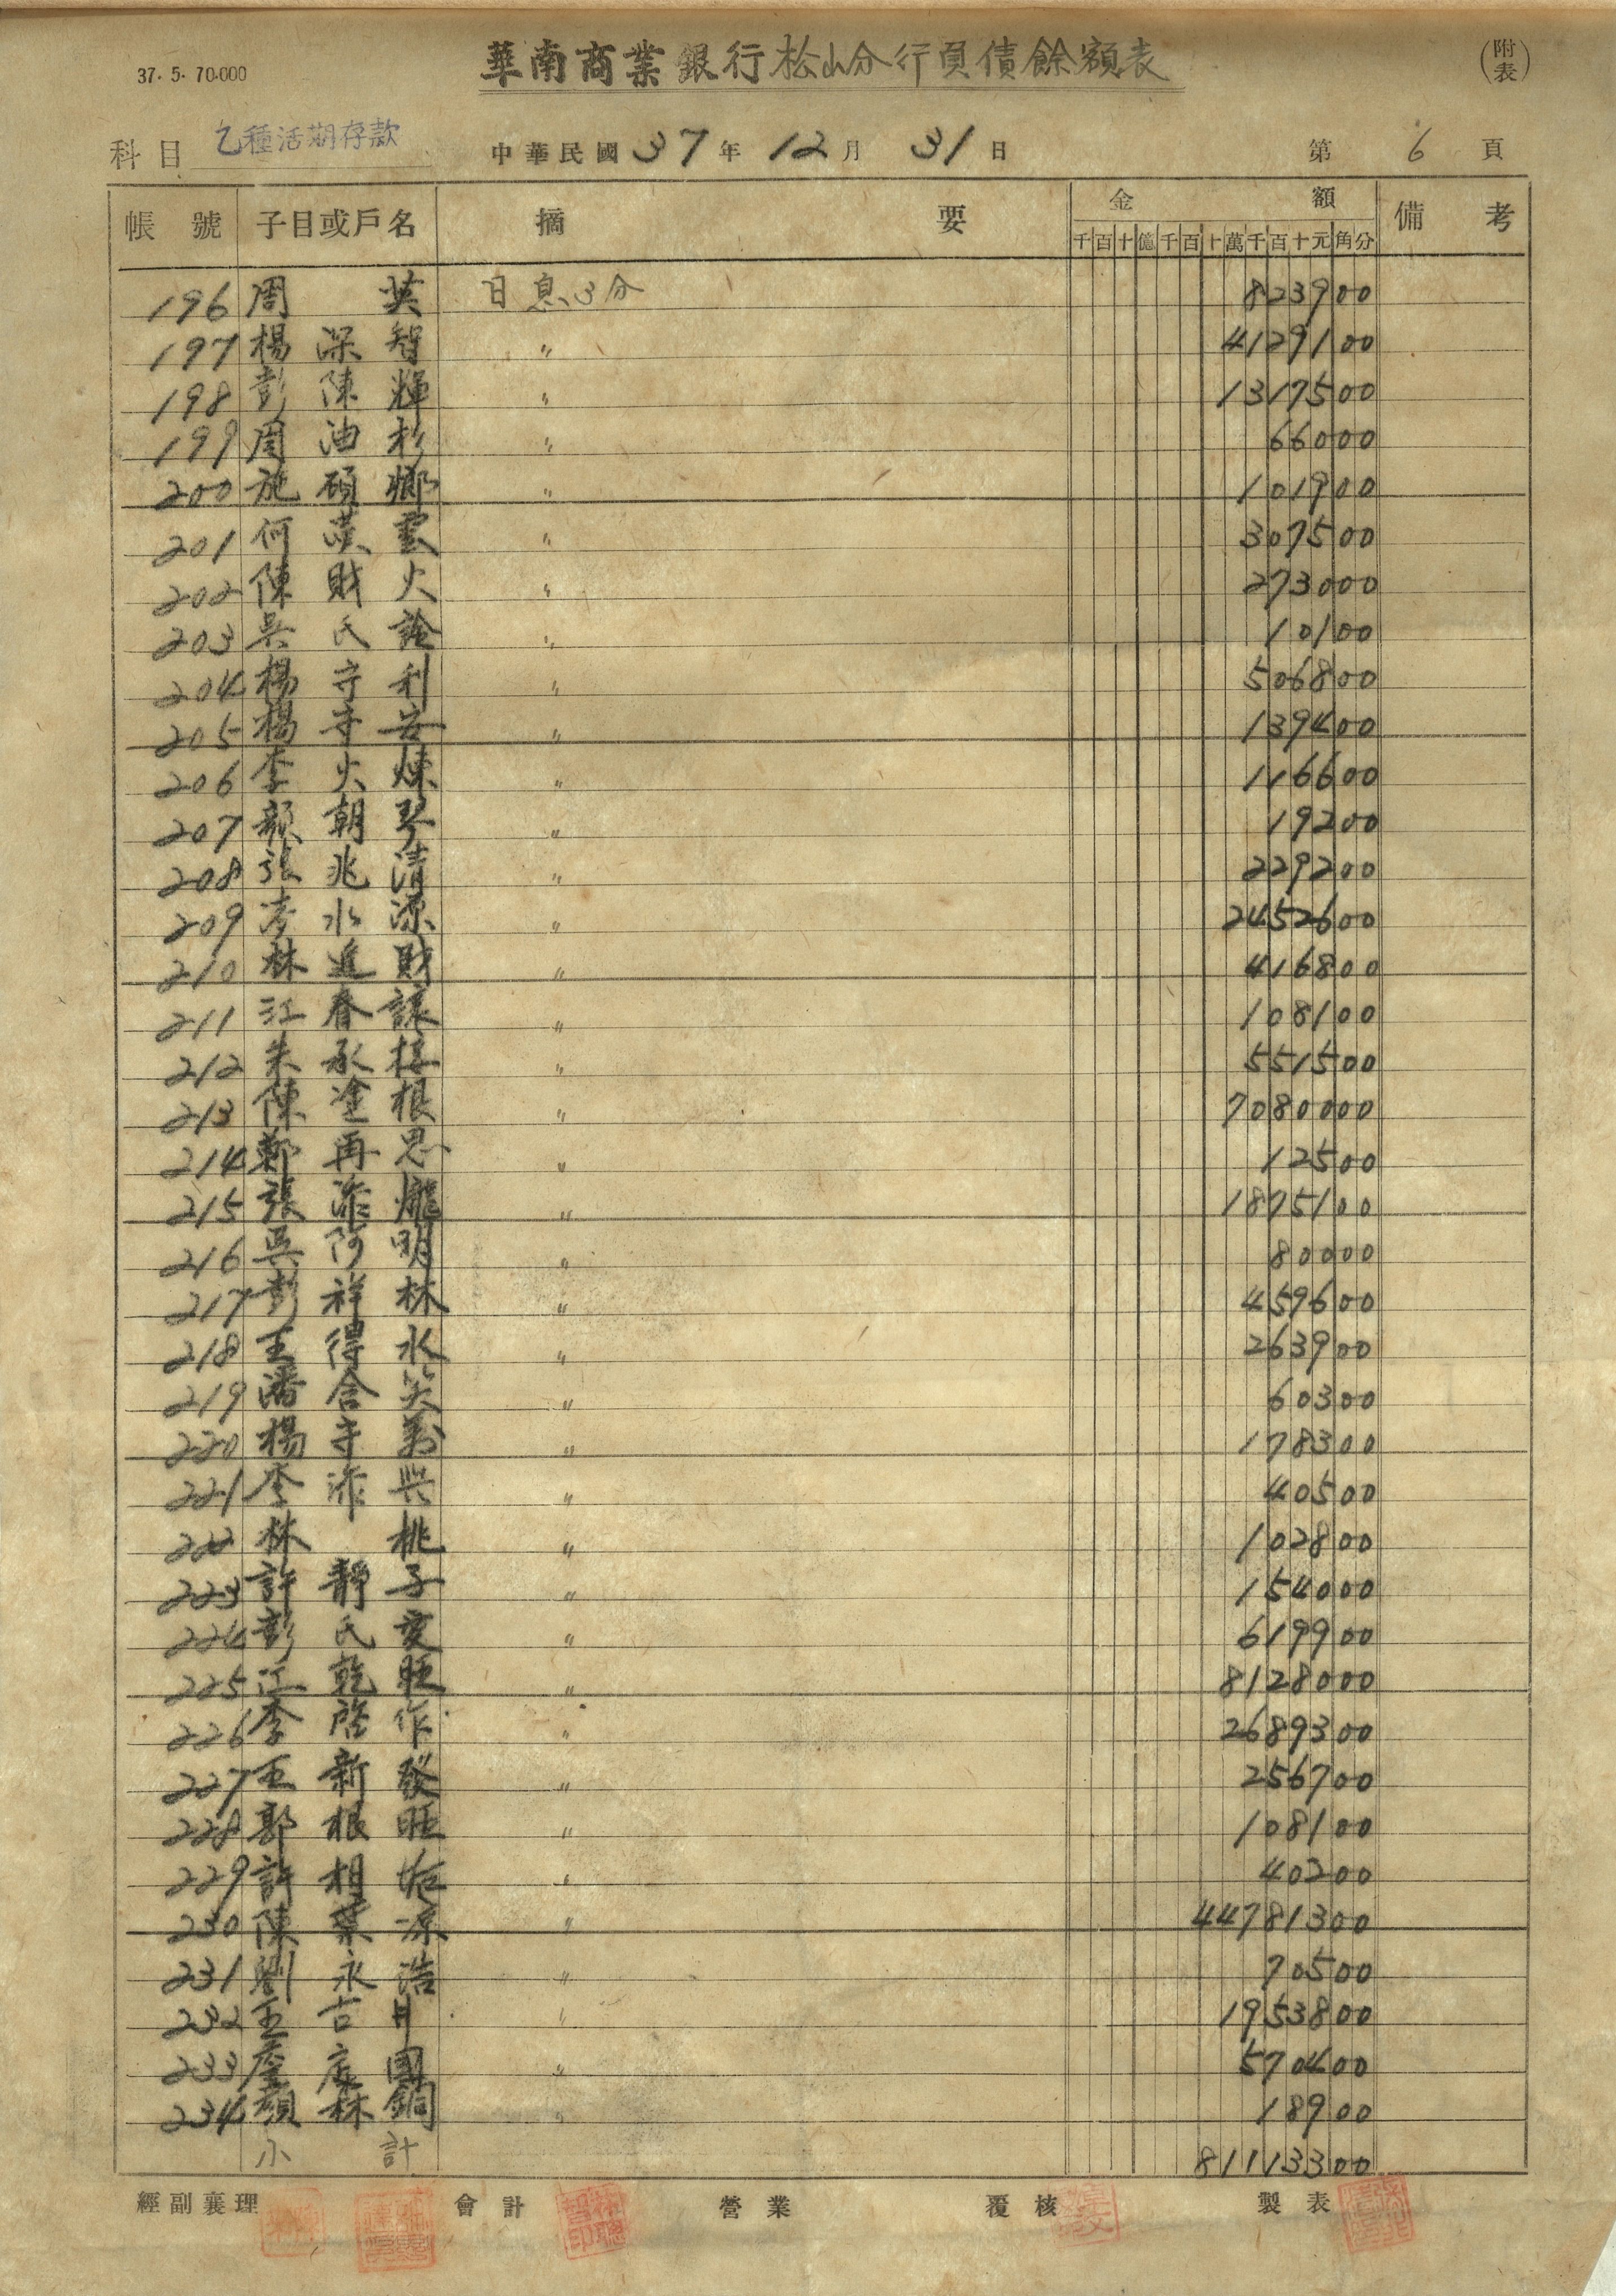 37. 5. 70.000
華南商業銀行松山分行負債餘額表
(附表)
科目 乙種活期存款 中華民國37年12月31日 第6頁
帳號 子目或戶名 摘要 金額 備考
千百十億千百十萬千百十元角分
196 周英 日息3分 823900
197 楊深智 〃 4129100
198 彭陳輝 〃 1317500
199 周油杉 〃 66000
200 施碩鄉 〃 101900
201 何漢雲 〃 307500
202 陳財火 〃 273000
203 吳氏詮 〃 10100
204 楊守利 〃 506800
205 楊守安 〃 139400
206 李火煉 〃 116600
207 顏朝琴 〃 19200
208 張兆清 〃 229200
209 李水源 〃 2452600
210 林進財 〃 416800
211 江春讓 〃 108100
212 朱承接 〃 551500
213 陳塗根 〃 7080000
214 鄭再思 〃 12500
215 張添 〃 1875100
216 吳阿明 〃 80000
217 彭祥林 〃 459600
218 王得水 〃 263900
219 潘含笑 〃 60300
220 楊守萬 〃 178300
221 李添興 〃 40500
222 林桃 〃 102800
223 許靜子 〃 154000
224 彭氏愛 〃 619900
225 江乾旺 〃 8128000
226 李啓作 〃 2689300
227 王新發 〃 256700
228 郭根旺 〃 108100
229 許相 〃 40200
230 陳葉源 〃 44781300
231 劉永浩 〃 70500
232 王吉井 〃 1953800
233 定國 〃 570400
234 顏林銅 〃 18900
小計 81113300
經副襄理 會計 營業 覆核 製表